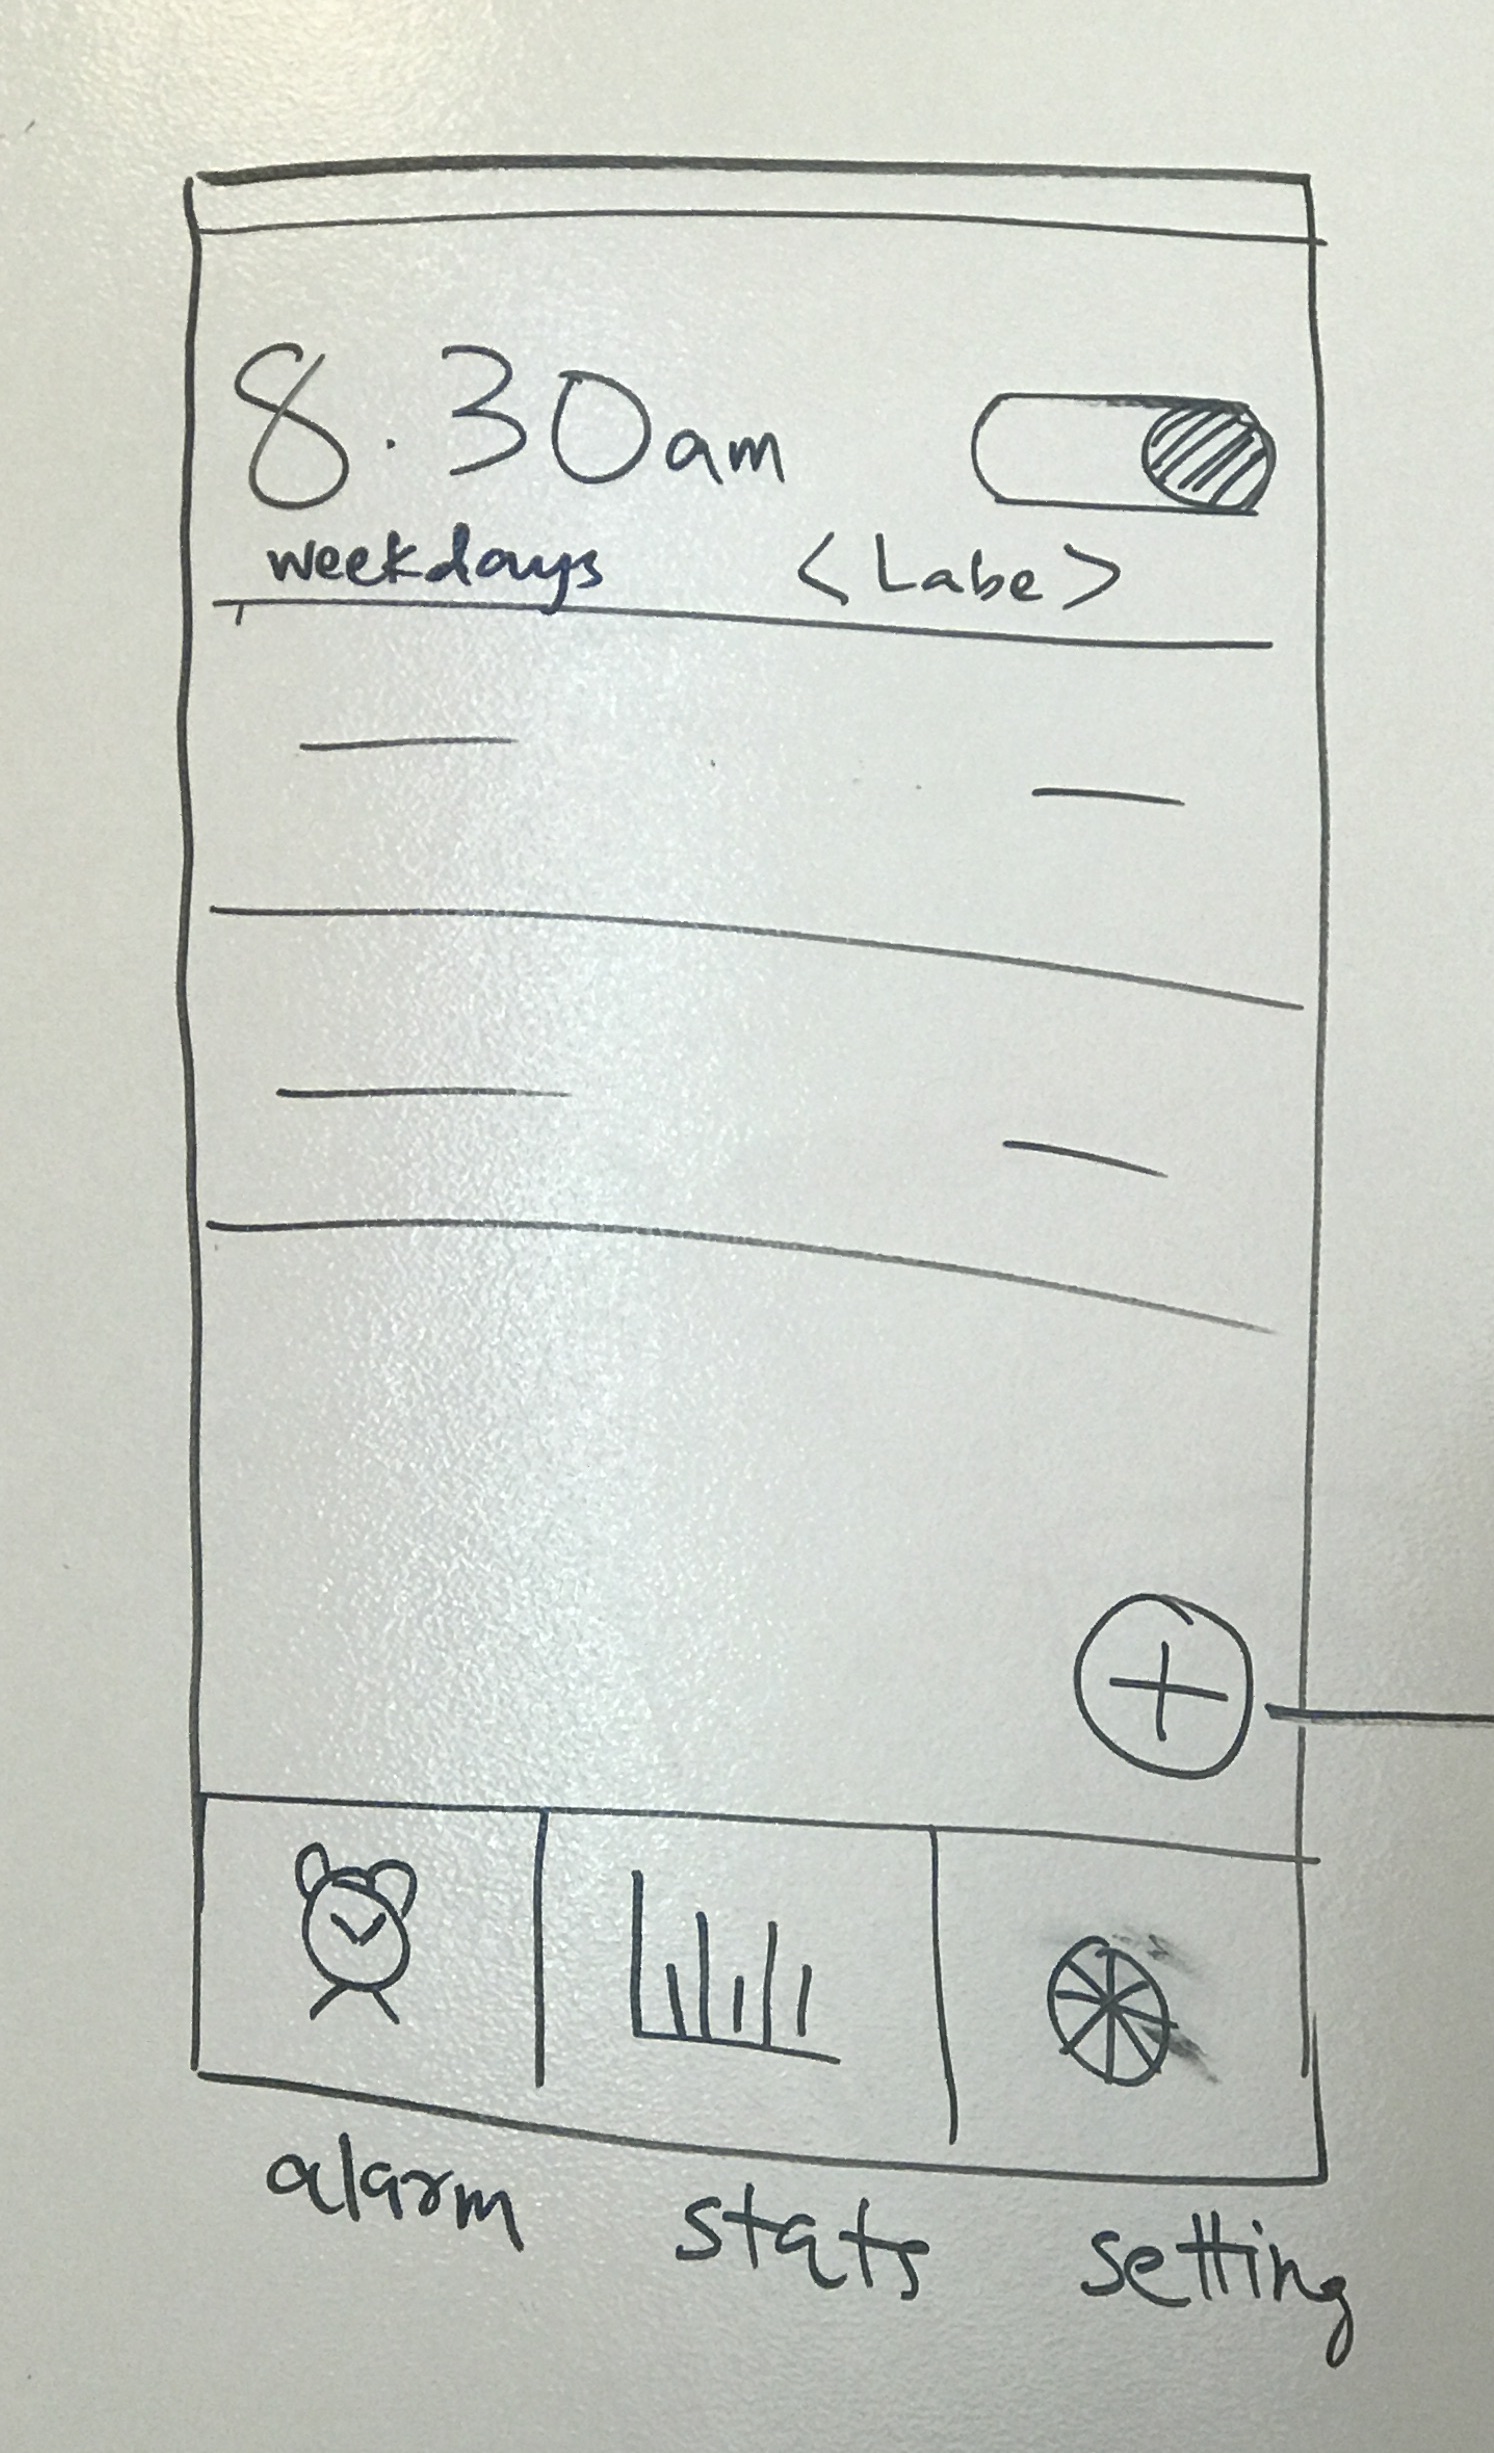 8.30am
weekdays <Labe>
alarm stats setting